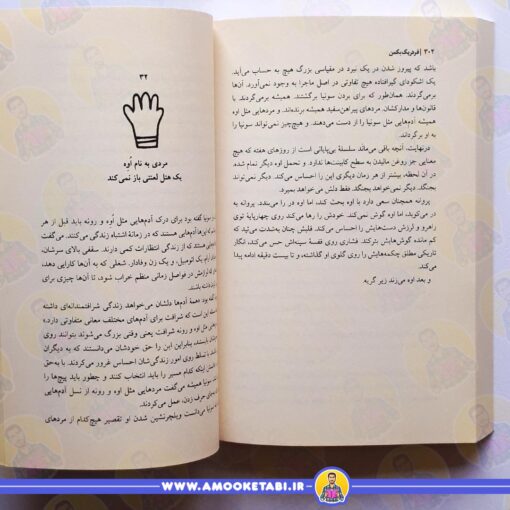 ۳۰۲ | فردریک بکمن
باشد که پیروز شدن در یک نبرد در مقیاسی بزرگ هیچ به حساب می‌آید.
یک اشکودای گیرافتاده هیچ تفاوتی در اصل ماجرا به وجود نمی‌آورد. آن‌ها
برمی‌گردند. همان‌طور که برای بردن سونیا برگشتند. همیشه برمی‌گردند. با
قانون‌ها و مدارکشان. مردهای پیراهن‌سفید همیشه برنده‌اند. و مردهایی مثل اوه
همیشه آدم‌هایی مثل سونیا را از دست می‌دهند. و هیچ‌چیز نمی‌تواند سونیا را
به او برگرداند.
درنهایت، آنچه باقی می‌ماند سلسلهٔ بی‌پایانی است از روزهای هفته که هیچ
معنایی جز روغن مالیدن به سطح کابینت‌ها ندارد. و تحمل اوه دیگر تمام شده.
در آن لحظه، بیشتر از هر زمان دیگری این را احساس می‌کند. دیگر نمی‌تواند
بجنگد. دیگر نمی‌خواهد بجنگد. فقط دلش می‌خواهد بمیرد.
پروانه همچنان سعی دارد با اوه بحث کند، اما اوه در را می‌بندد. پروانه به
در می‌کوبد، اما اوه گوش نمی‌کند. خودش را رها می‌کند روی چهارپایهٔ توی
راهرو و لرزش دست‌هایش را احساس می‌کند. قلبش چنان به‌شدت می‌تپد که
کم مانده گوش‌هایش بترکند. فشاری روی قفسهٔ سینه‌اش حس می‌کند، انگار
تاریکی مطلق چکمه‌هایش را روی گلوی او گذاشته، و تا بیست دقیقه ادامه پیدا
می‌کند.
و بعد اوه می‌زند زیر گریه.
۳۲
مردی به نام اُوه
یک هتل لعنتی باز نمی‌کند
سونیا گفته بود برای درک آدم‌هایی مثل اوه و رونه باید قبل از هر
آدم‌هایی هستند که در زمانهٔ اشتباه زندگی می‌کنند. می‌گفت
هستند که از زندگی انتظارات کمی دارند. سقفی بالای سرشان،
آرام، یک اتومبیل، و یک زن وفادار. شغلی که به آن‌ها کارایی دهد،
در فواصل زمانی منظم خراب شود، تا آن‌ها چیزی برای
داشته باشند.
گفته بود: «همهٔ آدم‌ها دلشان می‌خواهد زندگی شرافتمندانه‌ای داشته
این است که شرافت برای آدم‌های مختلف معانی متفاوتی دارد.»
مثل اوه و رونه شرافت یعنی وقتی بزرگ می‌شوند بتوانند روی
بایستند، بنابراین این را حق خودشان می‌دانستند که به دیگران
تسلط روی امور زندگی‌شان احساس غرور می‌کردند. با به‌حق
اینکه کدام مسیر را باید انتخاب کنند و چطور باید پیچ‌ها را
سونیا همیشه می‌گفت مردهایی مثل اوه و رونه از نسل آدم‌هایی
جای حرف زدن، عمل می‌کردند.
سونیا می‌دانست ویلچرنشین شدن او تقصیر هیچ‌کدام از مردهای
WWW.AMOOKETABI.IR